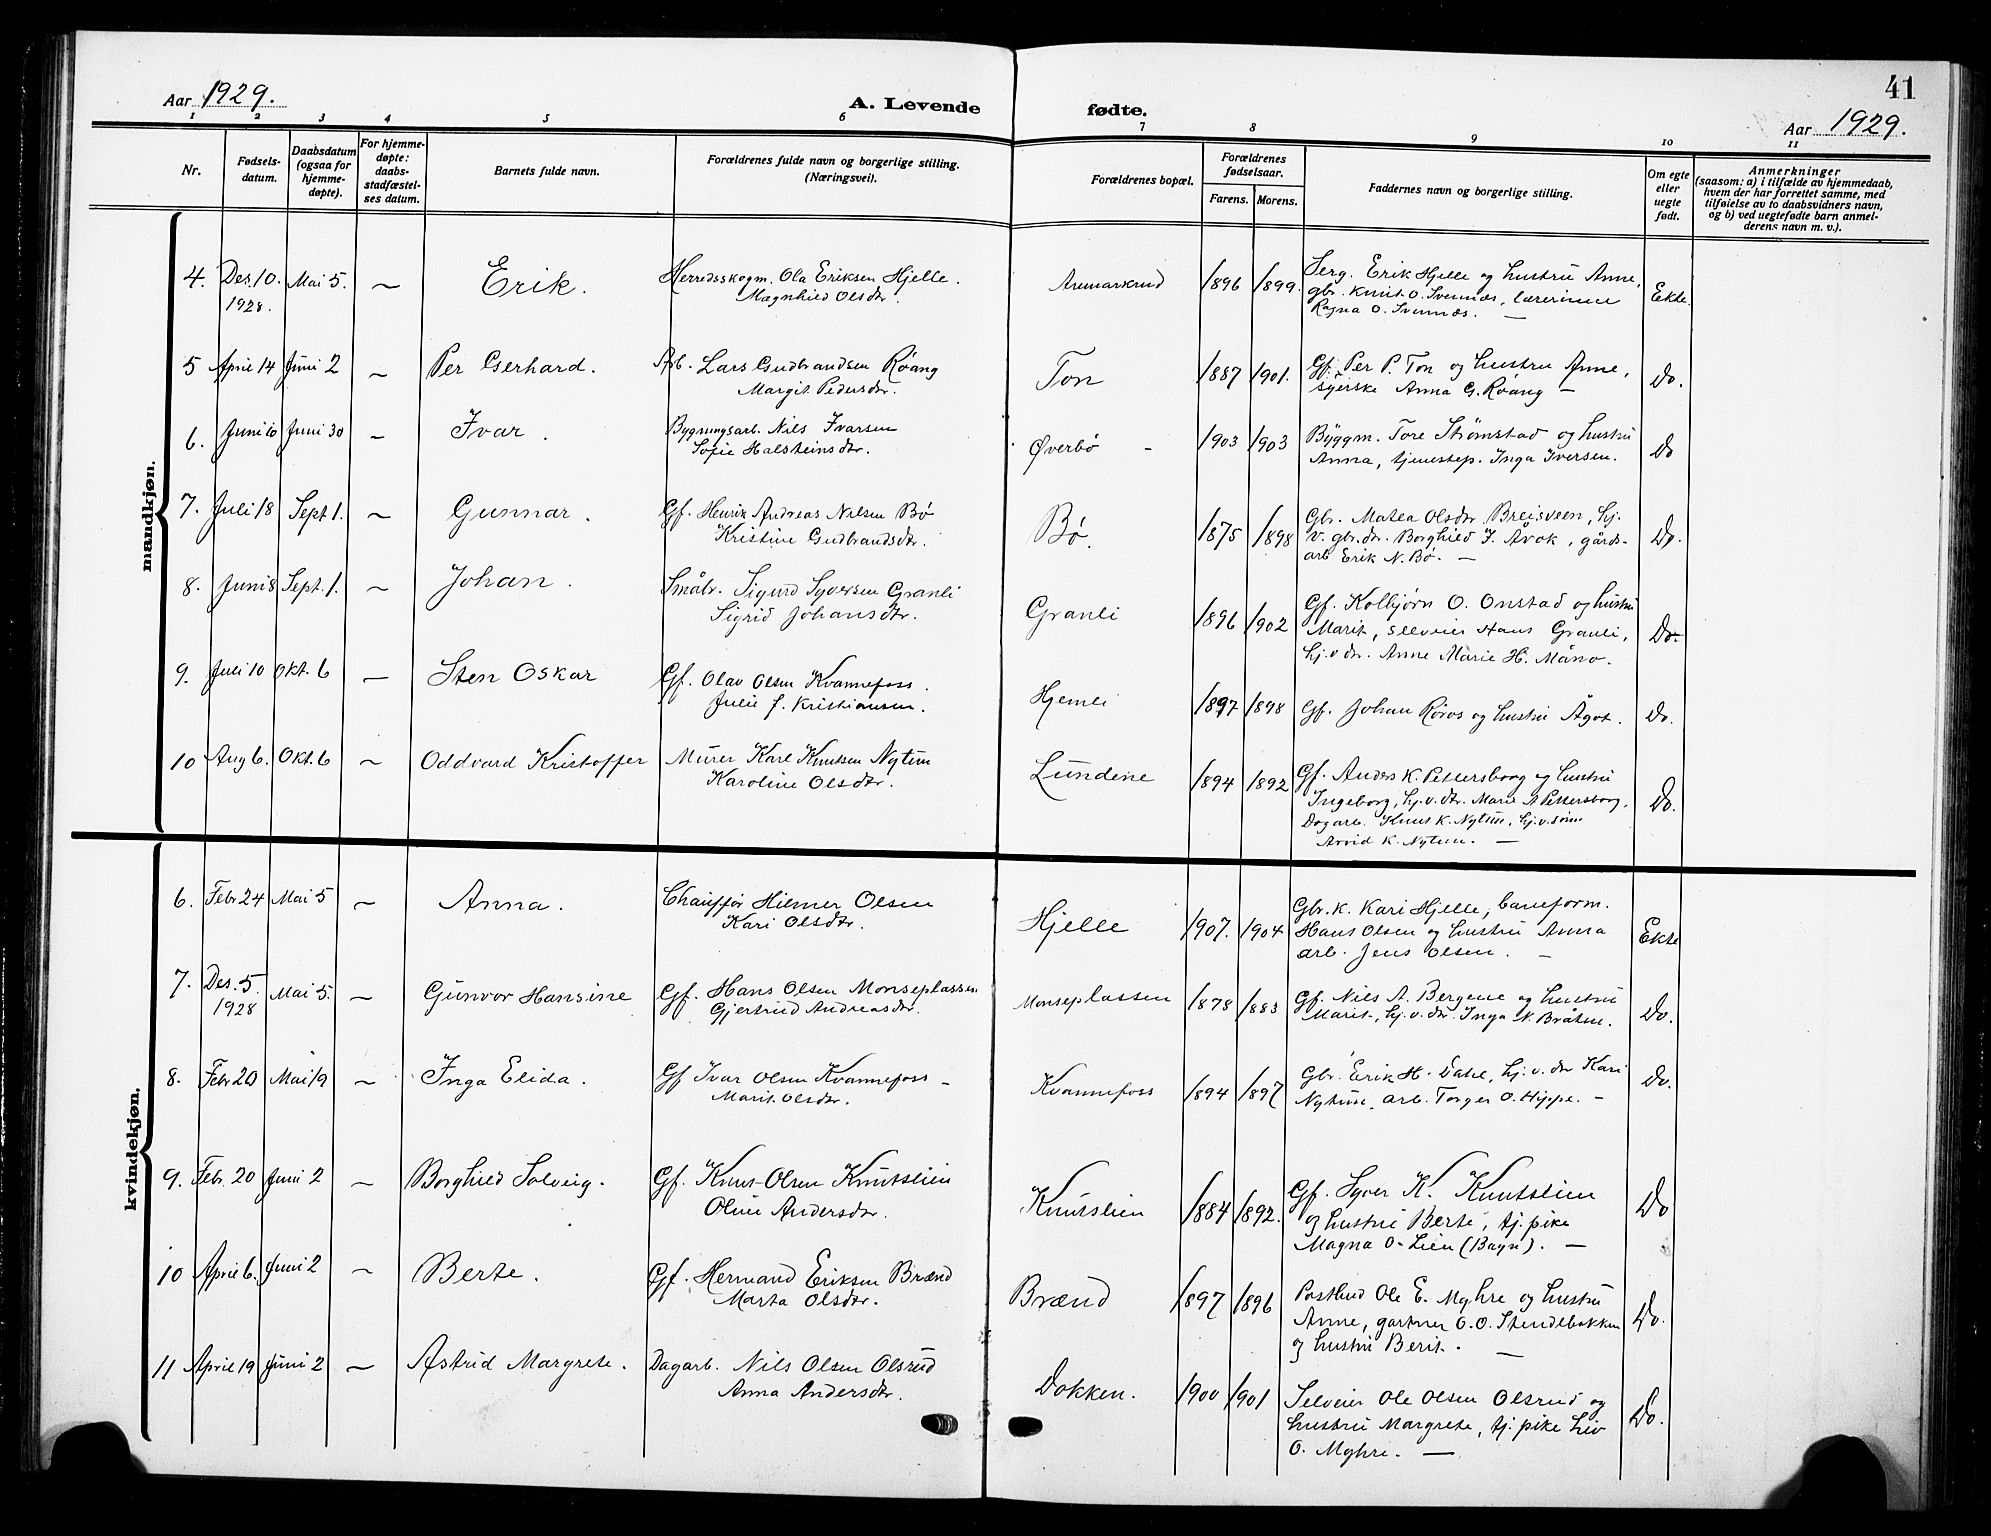 41
Aar 1929.
A. Levende fødte.
Aar 1929.
1 2 3 4 5 6 7 8 9 10 11
Nr.
Fødsels-
datum.
Daabsdatum
(ogsaa for
hjemme-
døpte).
For hjemme-
døpte:
daabs-
stadfæstel-
ses datum.
Barnets fulde navn.
Forældrenes fulde navn og borgerlige stilling.
(Næringsvei).
Forældrenes bopæl.
Forældrenes
fødselsaar.
Farens. Morens.
Faddernes navn og borgerlige stilling.
Om egte
eller
uegte
født.
Anmerkninger
(saasom: a) i tilfælde av hjemmedaab,
hvem der har forrettet samme, med
tilføielse av to daabsvidners navn,
og b) ved uegtefødte barn anmel-
derens navn m. v.).
mandkjøn.
4. Des. 10. 1928. Mai 5. — Erik.
Herredsskogm. Ola Eriksen Hjelle.
Magnhild Olsdtr.
1896 1899.
Serg. Erik Hjelle og hustru Anne,
gbr. Knut O. Svennæs, lærerinne
Ragna O. Svennæs. —
Ekte.
5 April 14 Juni 2 — Per Gerhard.
Arb. Lars Gudbrandsen Røang
Margit Pedersdtr.
Ton 1887 1901.
Gf. Per P. Ton og hustru Anne,
syerske Anna G. Røang —
Do.
6. Juni 10 Juni 30 — Ivar.
Bygningsarb. Nils Ivarsen
Sofie Halsteinsdtr.
Øverbø - 1903 1903
Byggm. Tore Strømstad og hustru
Anna, tjenestep. Inga Iversen.
Do
7. Juli 18 Sept 1. — Gunnar.
Gf. Henrik Andreas Nilsen Bø
Kristine Gudbrandsdtr.
Bø. 1875 1898
Gbr. Matea Olsdtr Breisveen, hj.
v. gbr. dr. Borghild J. Avok, gårds-
arb Erik N. Bø. —
Do.
8. Juni 8 Sept. 1. — Johan.
Småbr. Sigurd Syversen Granli
Sigrid Johansdtr.
Granli 1896 1902
Gf. Kolbjørn O. Onstad og hustru
Marit, selveier Hans Granli,
hj. v dr. Anne Marie H. Måno.
Do.
9. Juli 10 Okt. 6 — Sten Oskar
Gf. Olav Olsen Kvannefoss.
Julie f. Kristiansen.
Hjemli 1897 1898
Gf. Johan Røros og hustru Ågot.
Do.
10 Aug 6. Okt. 6 — Oddvard Kristoffer
Murer Karl Knutsen Nytun
Karoline Olsdtr.
Lundene 1894 1892
Gf. Anders K. Pettersborg og hustru
Ingeborg, hj. v. dtr. Marie A Pettersborg,
Dagarb. Knut K. Nytun, hj. v. sønn
Arvid K. Nytun. —
Do.
kvindekjøn.
6. Febr 24 Mai 5 — Anna.
Chauffør Hilmer Olsen
Kari Olsdtr.
Hjelle 1907. 1904
Gbr. k. Kari Hjelle, baneform.
Hans Olsen og hustru Anna
arb. Jens Olsen. —
Ekte
7. Des. 5. 1928 Mai 5. — Gunvor Hansine
Gf. Hans Olsen Monseplassen
Gjertrud Andreasdtr.
Monseplassen 1878 1883
Gf. Nils A. Bergene og hustru
Marit, hj. v. dr. Inga N. Bråten.
Do.
8. Febr 20 Mai 19 — Inga Elida.
Gf Ivar Olsen Kvannefoss -
Marit Olsdtr.
Kvannefoss 1894 1897
Gbr. Erik H. Dahl, hj. v. dr Kari
Nytun, arb. Torger O. Hippe. -
Do.
9. Febr. 20 Juni 2 — Borghild Solveig.
Gf. Knut Olsen Knutslien
Oline Andersdtr.
Knutslien 1884 1892.
Gf. Syver K. Knutslien
og hustru Berte, tj. pike
Magna O. Lien (Bagn). —
Do
10 April 6. Juni 2 — Berte.
Gf. Hermand Eriksen Brænd
Marta Olsdtr.
Brænd 1897 1896
Postbud Ole E. Myhre og hustru
Anne, gartner O. O. Stendebakken
og hustru Berit. —
Do.
11 April 19 Juni 2 — Astrid Margrete.
Dagarb. Nils Olsen Olsrud
Anna Andersdtr.
Dokken. 1900 1901
Selveier Ole Olsen Olsrud og
hustru Margrete, tj. pike Liv
O. Myhre. —
Do.